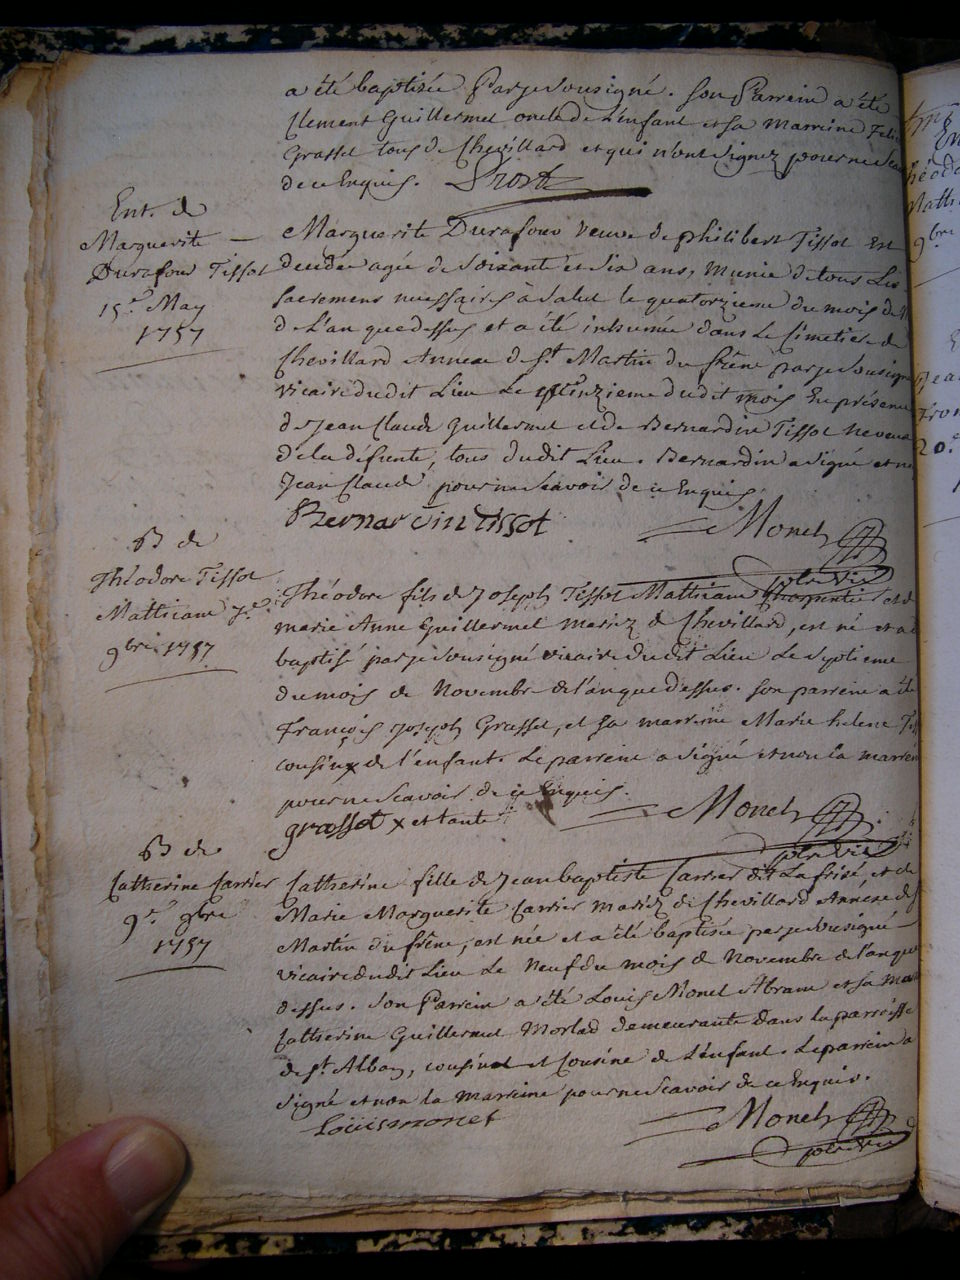 a été baptisée par je sousigné. son Parrein a été
Clement Guillermet oncle de L'enfant et sa marreine
Grasset tous de Chevillard et qui n'ont signez pour ne
de ce Enquis. Prost
Ent. de
Marguerite
Durafour Tissot
15e May
1757
Marguerite Durafour veuve de philibert Tissot Est
decedée agée de soixante et six ans, munie de tous Les
sacremens necessaires à salut le quatorzieme du mois de
de L'an que dessus, et a été inhumée dans Le Cimetiere de
Chevillard Annexe de St Martin du frêne par je sousigné
vicaire dudit Lieu Le quinzieme dudit mois En présence
de Jean Claude Guillermet et de Bernardin Tissot neveux
de la défunte, tous dudit Lieu. Bernardin a signé et non
Jean Claude pour ne sçavoir de ce Enquis
Bernardin Tissot Monet
ptre vic
B de
Théodore Tissot
Mathieu 7e
9bre 1757
Théodore fils de Joseph Tissot charpentier et de
marie Anne Guillermet mariez de Chevillard, est né et a été
baptisé par je sousigné vicaire dudit Lieu Le septieme
du mois de Novembre de l'an que dessus. son parrein a été
François Joseph Grasset, et sa marreine Marie helene
cousins de l'enfant. Le parrein a signé et non la marreine
pour ne sçavoir de ce Enquis.
grasset Monet
ptre vic
B de
Catherine Carrier
9e 9bre
1757
Catherine fille de Jean baptiste Carrier dit La frisé et de
Marie Marguerite Carrier mariez de Chevillard Annexe de St
Martin du frêne, est née et a été baptisée par je sousigné
vicaire dudit Lieu Le Neuf du mois de Novembre de l'an que
dessus. Son Parrein a été Louis Monet Abram et sa
Catherine Guillermet Morlad demeurante dans la parroisse
de St Alban, cousin et Cousine de L'enfant. Le parrein a
signé et non la marreine pour ne sçavoir de ce Enquis.
Loüis monet Monet
ptre vic